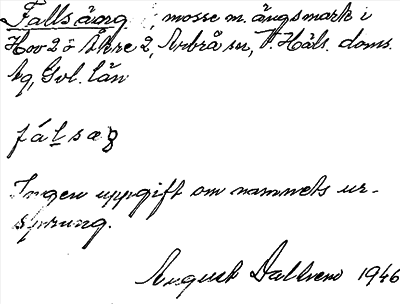 Fallsäng, mosse m. ängsmark i
Hov 2 ö Åkre 2, Arbrå sn, V. Häls. doms.
Gvl. län
fálsæŋ
Ingen uppgift om namnets ur-
sprung.
August 1946